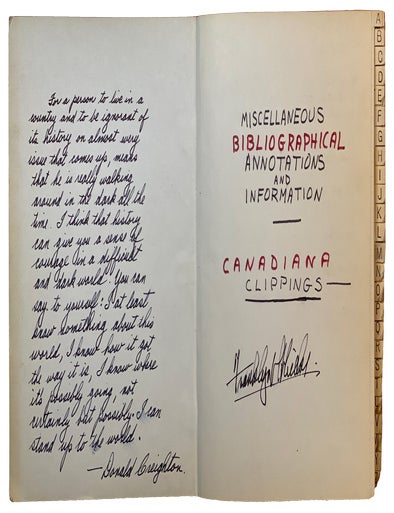 For a person to live in a
country and to be ignorant of
its history on almost every
issue that comes up, means
that he is really walking
around in the dark all the
time. I think that history
can give you a sense of
courage in a difficult
and dark world. You can
say to yourself: I at least
know something about this
world, I know how it got
the way it is, I know where
it's possibly going, not
certainly but possibly. I can
stand up to the world.
— Donald Creighton.
MISCELLANEOUS
BIBLIOGRAPHICAL
ANNOTATIONS
AND
INFORMATION
CANADIANA
CLIPPINGS
A
B
C
D
E
F
G
H
I
J
K
L
M
N
O
P
Q
R
S
T